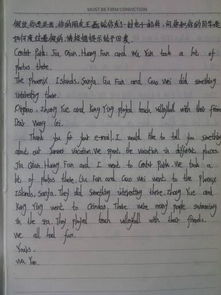 MUST BE FIRM CONVICTION
假设你是孟燕,你的朋友王磊给你发了一封电子邮件,问你和你的同学是
如何度过暑假的,请按提示给予回复。
Central Park: Jia Qian, Huang Fan and Me Yan took a lot of
photos there.
The Phoenix Islands, Sanya: Liu Fan and Cao Wei did something
interesting there.
Qingdao: Zhang Yue and Kong Ying played beach volleyball with their friends
Dear Wang Lei,
Thank you for your e-mail. I would like to tell you something
about our summer vacation. We spent the vacation in different places.
Jia Qian, Huang Fan and I went to Central Park. We took a
lot of photos there. Liu Fan and Cao Wei went to the Phoenix
Islands, Sanya. They did something interesting there. Zhang Yue and
Kong Ying went to Qingdao. There were many people swimming
in the sea. They played beach volleyball with their friends.
We all had fun.
Yours,
Yan.